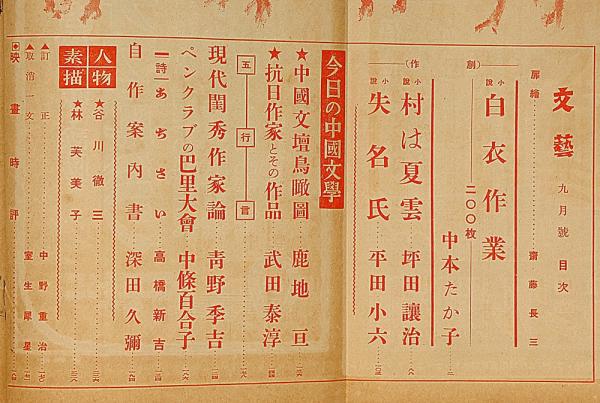 文藝 九月號目次
扉繪 齋藤長三
(創作)
小說 白衣作業 二〇〇枚 中本たか子
小說 村は夏雲 坪田讓治
小說 失名氏 平田小六
今日の中國文學
★中國文壇鳥瞰圖 鹿地亘
★抗日作家とその作品 武田泰淳
五行言
現代閨秀作家論 靑野季吉
ペンクラブの巴里大會 中條百合子
―詩― あぢさい 高橋新吉
自作案内書 深田久彌
人物素描
★谷川徹三
★林芙美子
▲訂正 中野重治
▲取消一文 室生犀星
映畫時評